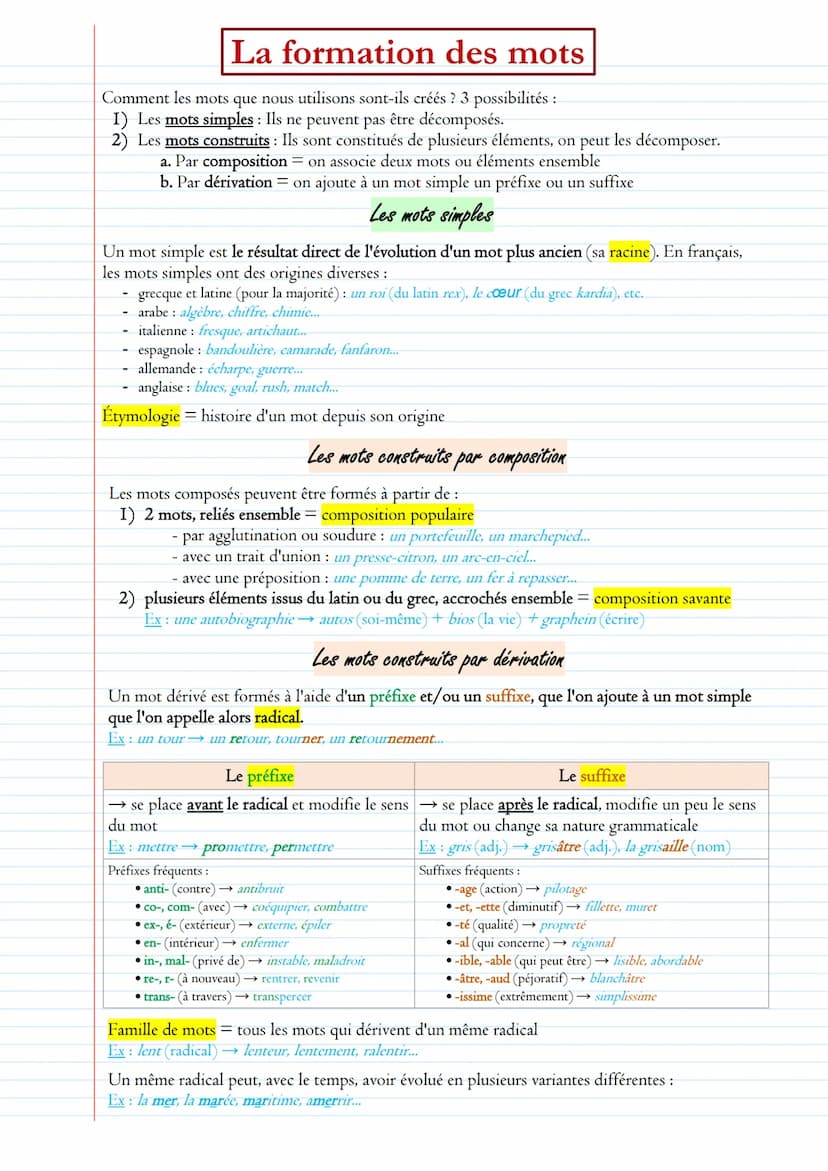 La formation des mots
Comment les mots que nous utilisons sont-ils créés ? 3 possibilités :
1) Les mots simples : Ils ne peuvent pas être décomposés.
2) Les mots construits : Ils sont constitués de plusieurs éléments, on peut les décomposer.
a. Par composition = on associe deux mots ou éléments ensemble
b. Par dérivation = on ajoute à un mot simple un préfixe ou un suffixe
Les mots simples
Un mot simple est le résultat direct de l'évolution d'un mot plus ancien (sa racine). En français,
les mots simples ont des origines diverses :
- grecque et latine (pour la majorité) : un roi (du latin rex), le cœur (du grec kardia), etc.
- arabe : algèbre, chiffre, chimie...
- italienne : fresque, artichaut...
- espagnole : bandoulière, camarade, fanfaron...
- allemande : écharpe, guerre...
- anglaise : blues, goal, rush, match...
Étymologie = histoire d'un mot depuis son origine
Les mots construits par composition
Les mots composés peuvent être formés à partir de :
1) 2 mots, reliés ensemble = composition populaire
- par agglutination ou soudure : un portefeuille, un marchepied...
- avec un trait d'union : un presse-citron, un arc-en-ciel...
- avec une préposition : une pomme de terre, un fer à repasser...
2) plusieurs éléments issus du latin ou du grec, accrochés ensemble = composition savante
Ex : une autobiographie → autos (soi-même) + bios (la vie) + graphein (écrire)
Les mots construits par dérivation
Un mot dérivé est formés à l'aide d'un préfixe et/ou un suffixe, que l'on ajoute à un mot simple
que l'on appelle alors radical.
Ex : un tour → un retour, tourner, un retournement...
Le préfixe
→ se place avant le radical et modifie le sens
du mot
Ex : mettre → promettre, permettre
Le suffixe
→ se place après le radical, modifie un peu le sens
du mot ou change sa nature grammaticale
Ex : gris (adj.) → grisâtre (adj.), la grisaille (nom)
Préfixes fréquents :
• anti- (contre) → antibruit
• co-, com- (avec) → coéquipier, combattre
• ex-, é- (extérieur) → externe, épiler
• en- (intérieur) → enfermer
• in-, mal- (privé de) → instable, maladroit
• re-, r- (à nouveau) → rentrer, revenir
• trans- (à travers) → transpercer
Suffixes fréquents :
• -age (action) → pilotage
• -et, -ette (diminutif) → fillette, muret
• -té (qualité) → propreté
• -al (qui concerne) → régional
• -ible, -able (qui peut être) → lisible, abordable
• -âtre, -aud (péjoratif) → blanchâtre
• -issime (extrêmement) → simplissime
Famille de mots = tous les mots qui dérivent d'un même radical
Ex : lent (radical) → lenteur, lentement, ralentir...
Un même radical peut, avec le temps, avoir évolué en plusieurs variantes différentes :
Ex : la mer, la marée, maritime, amerrir...